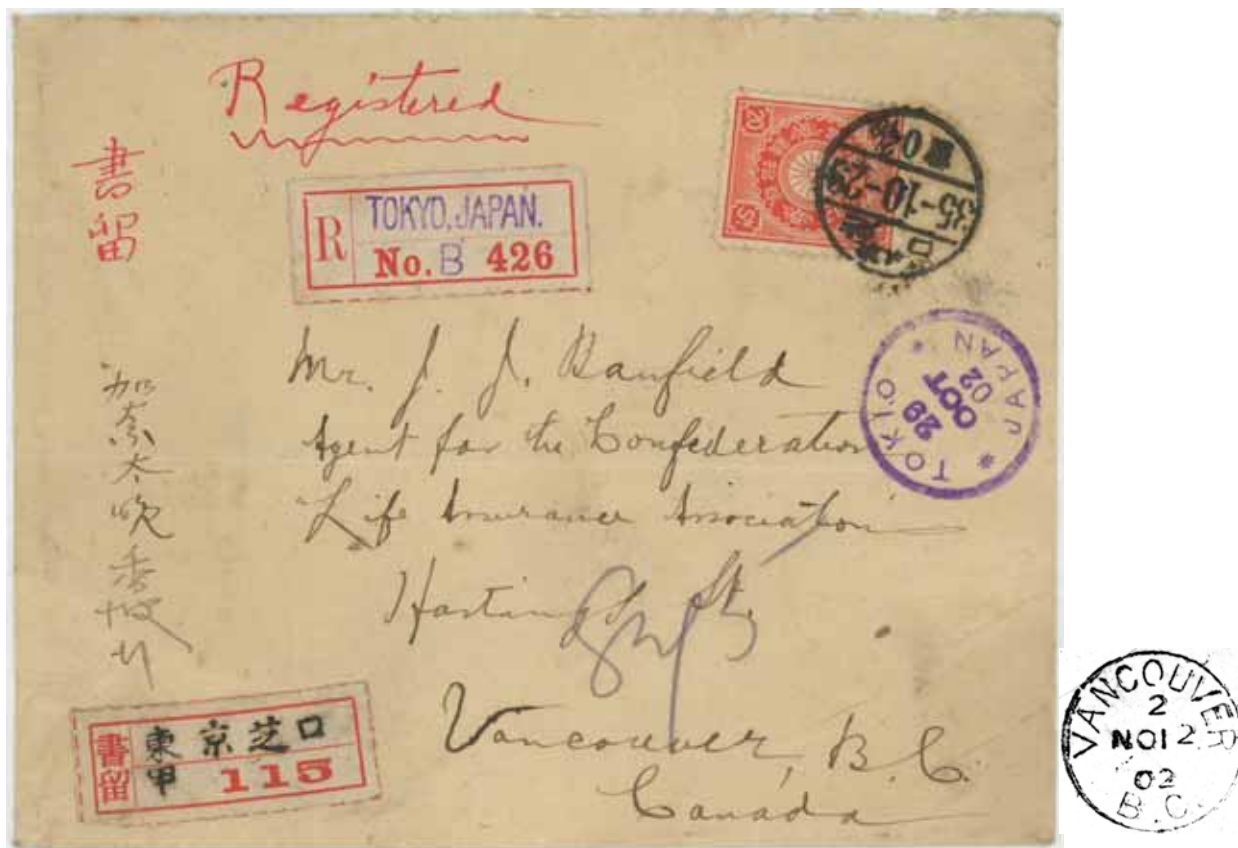 Registered
書留
R
TOKYO, JAPAN.
No. B 426
20
35-10-29
TOKIO
29
OCT
02
JAPAN
Mr. J. J. Banfield
Agent for the Confederation
Life Insurance Association
Hastings St.
Vancouver, B.C.
Canada
加奈太晩香坡行
書留
東京芝口
甲 115
VANCOUVER
2
NO 12
02
B.C.